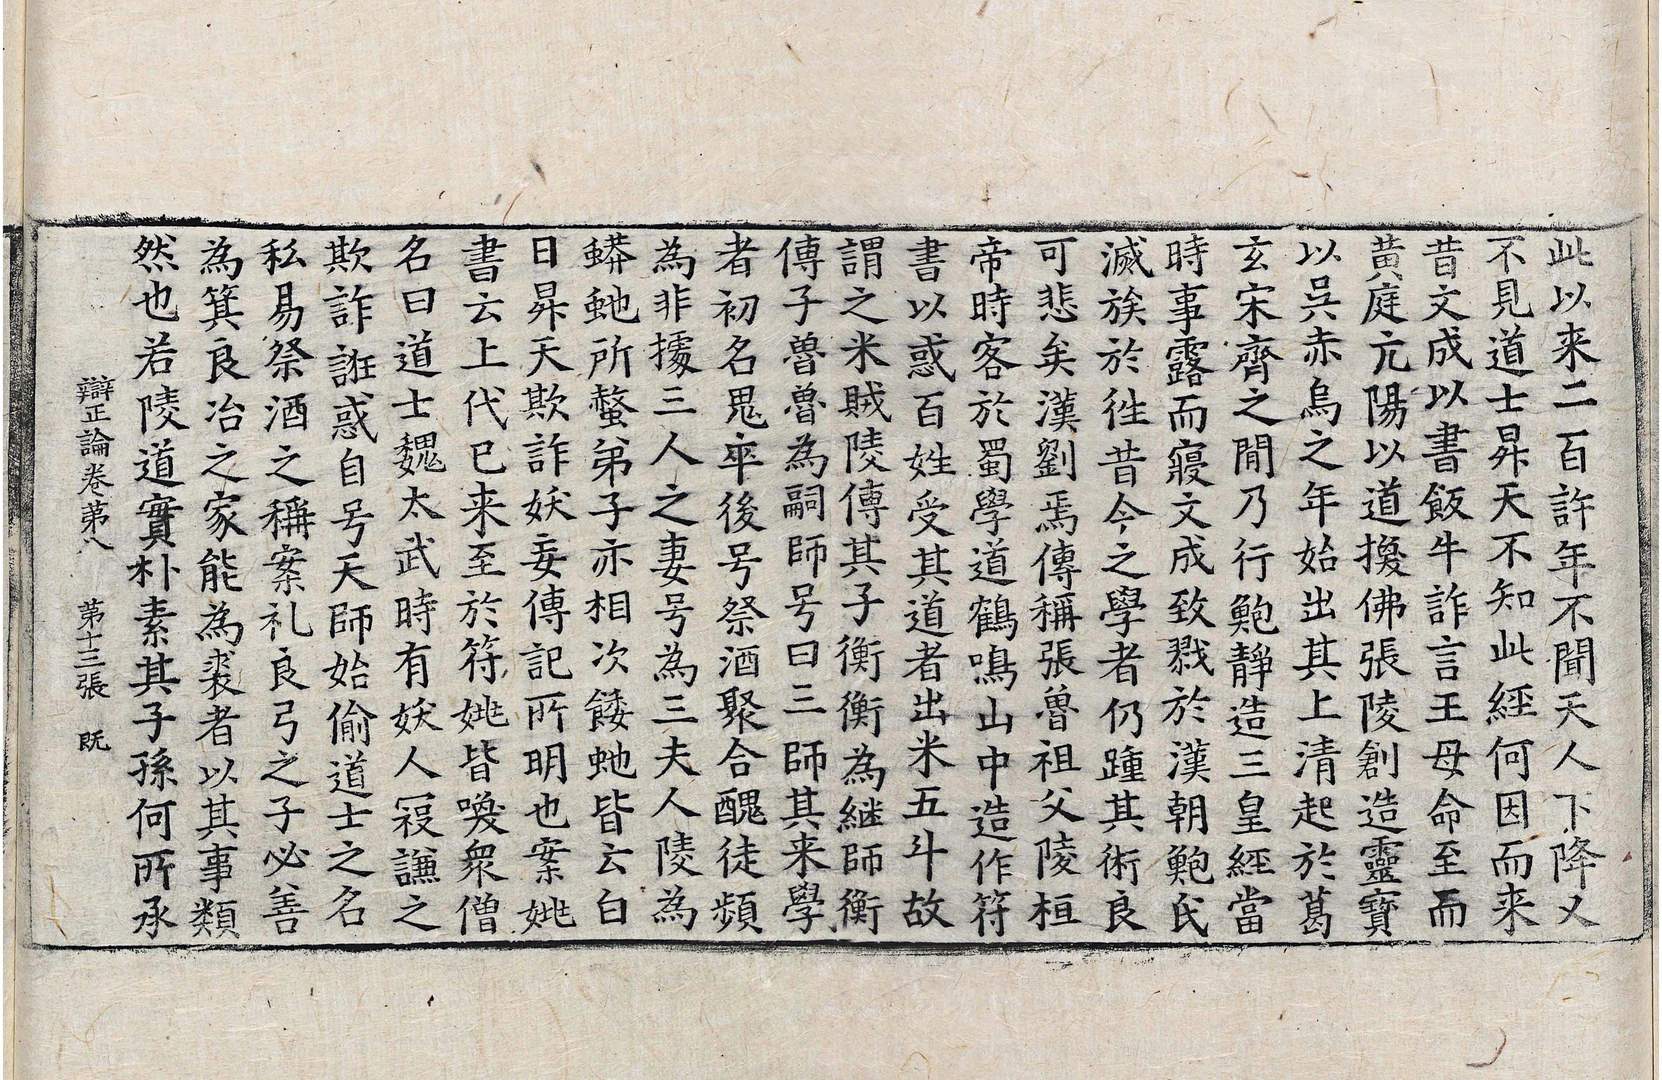 此以来二百許年不聞天人下降又
不見道士昇天不知此經何因而来
昔文成以書飯牛詐言王母命至而
黄庭元陽以道換佛張陵創造靈寶
以吳赤烏之年始出其上清起於葛
玄宋齊之間乃行鮑靜造三皇經當
時事露而寢文成致戮於漢朝鮑氏
滅族於徃昔今之學者仍踵其術良
可悲矣漢劉焉傳稱張魯祖父陵桓
帝時客於蜀學道鶴鳴山中造作符
書以惑百姓受其道者出米五斗故
謂之米賊陵傳其子衡衡為継師衡
傳子魯魯為嗣師号曰三師其来學
者初名鬼卒後号祭酒聚合醜徒頻
為非據三人之妻号為三夫人陵為
蟒虵所螫弟子亦相次餧虵皆云白
日昇天欺詐妖妄傳記所明也案姚
書云上代已来至於符姚皆喚衆僧
名曰道士魏太武時有妖人寇謙之
欺詐誑惑自号天師始偷道士之名
私易祭酒之稱案礼良弓之子必善
為箕良冶之家能為裘者以其事類
然也若陵道實朴素其子孫何所承
辯正論卷第八　第十三張　既